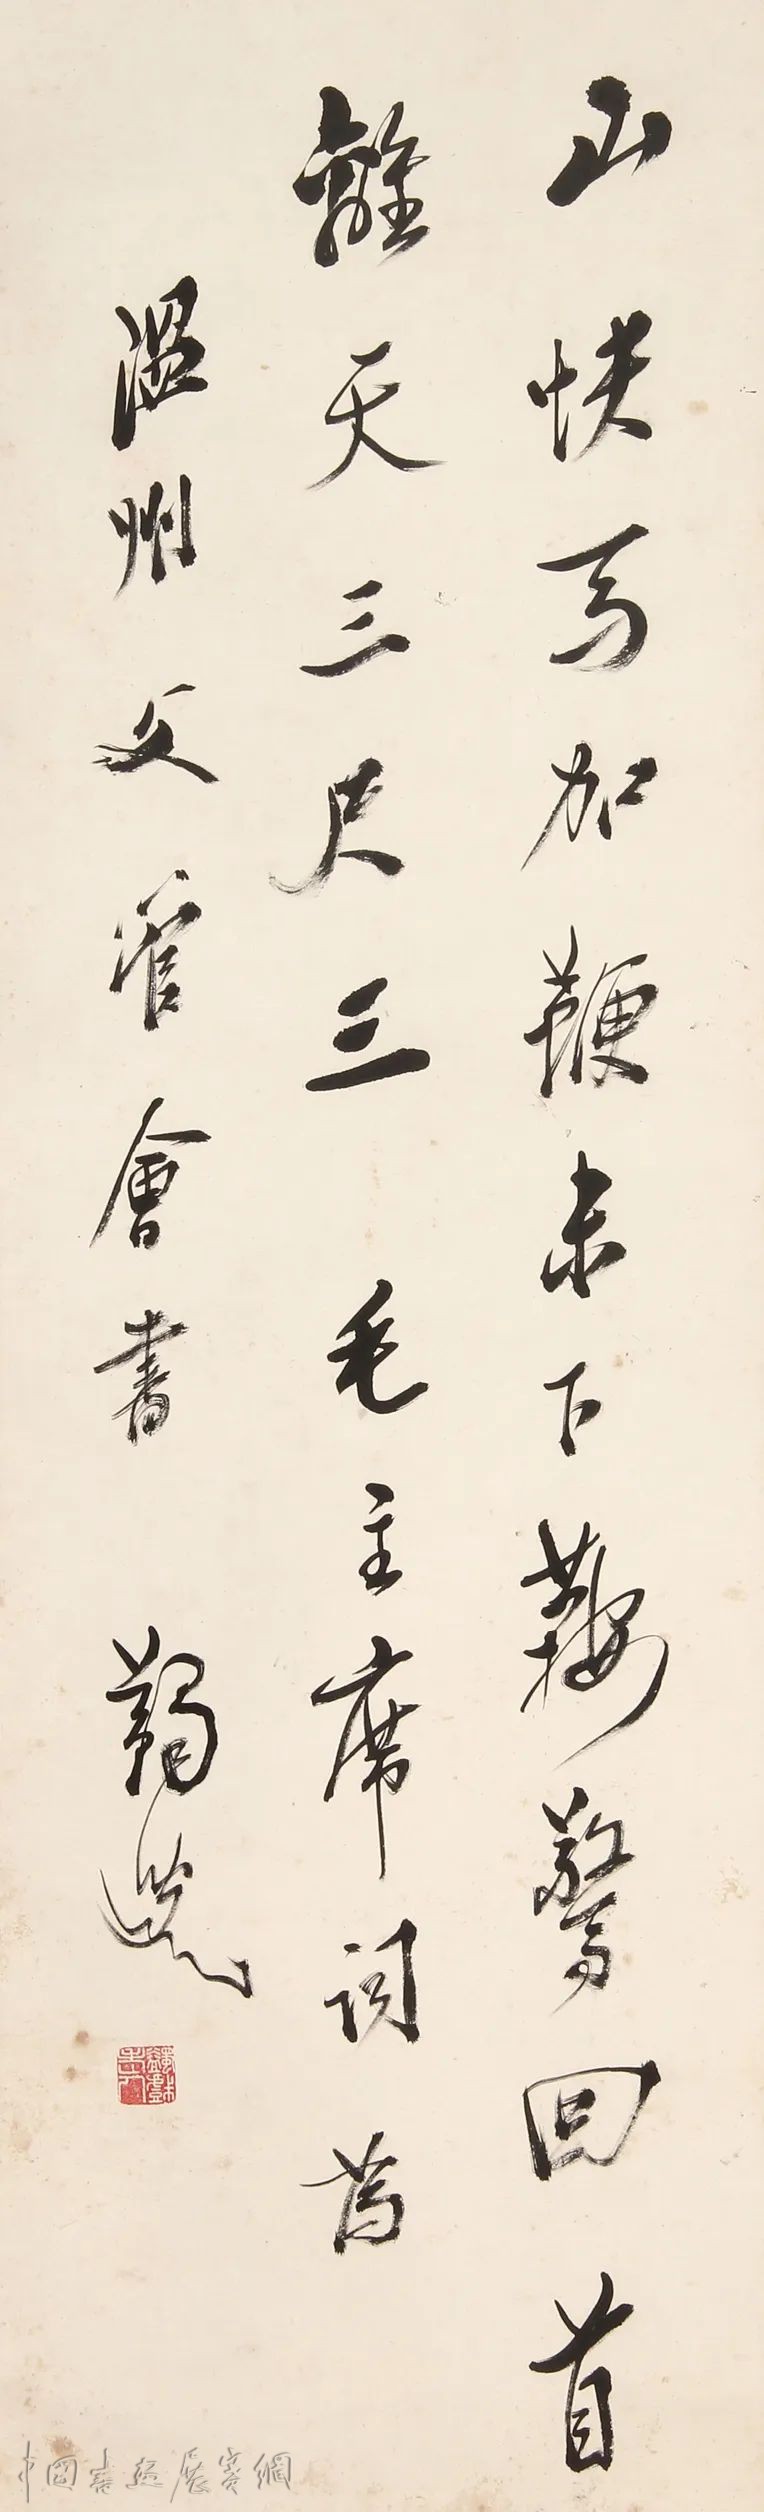 山快馬加鞭未下鞍驚回首
離天三尺三 毛主席詞為
溫州文管會書 蔣逸
中國書法展賽網